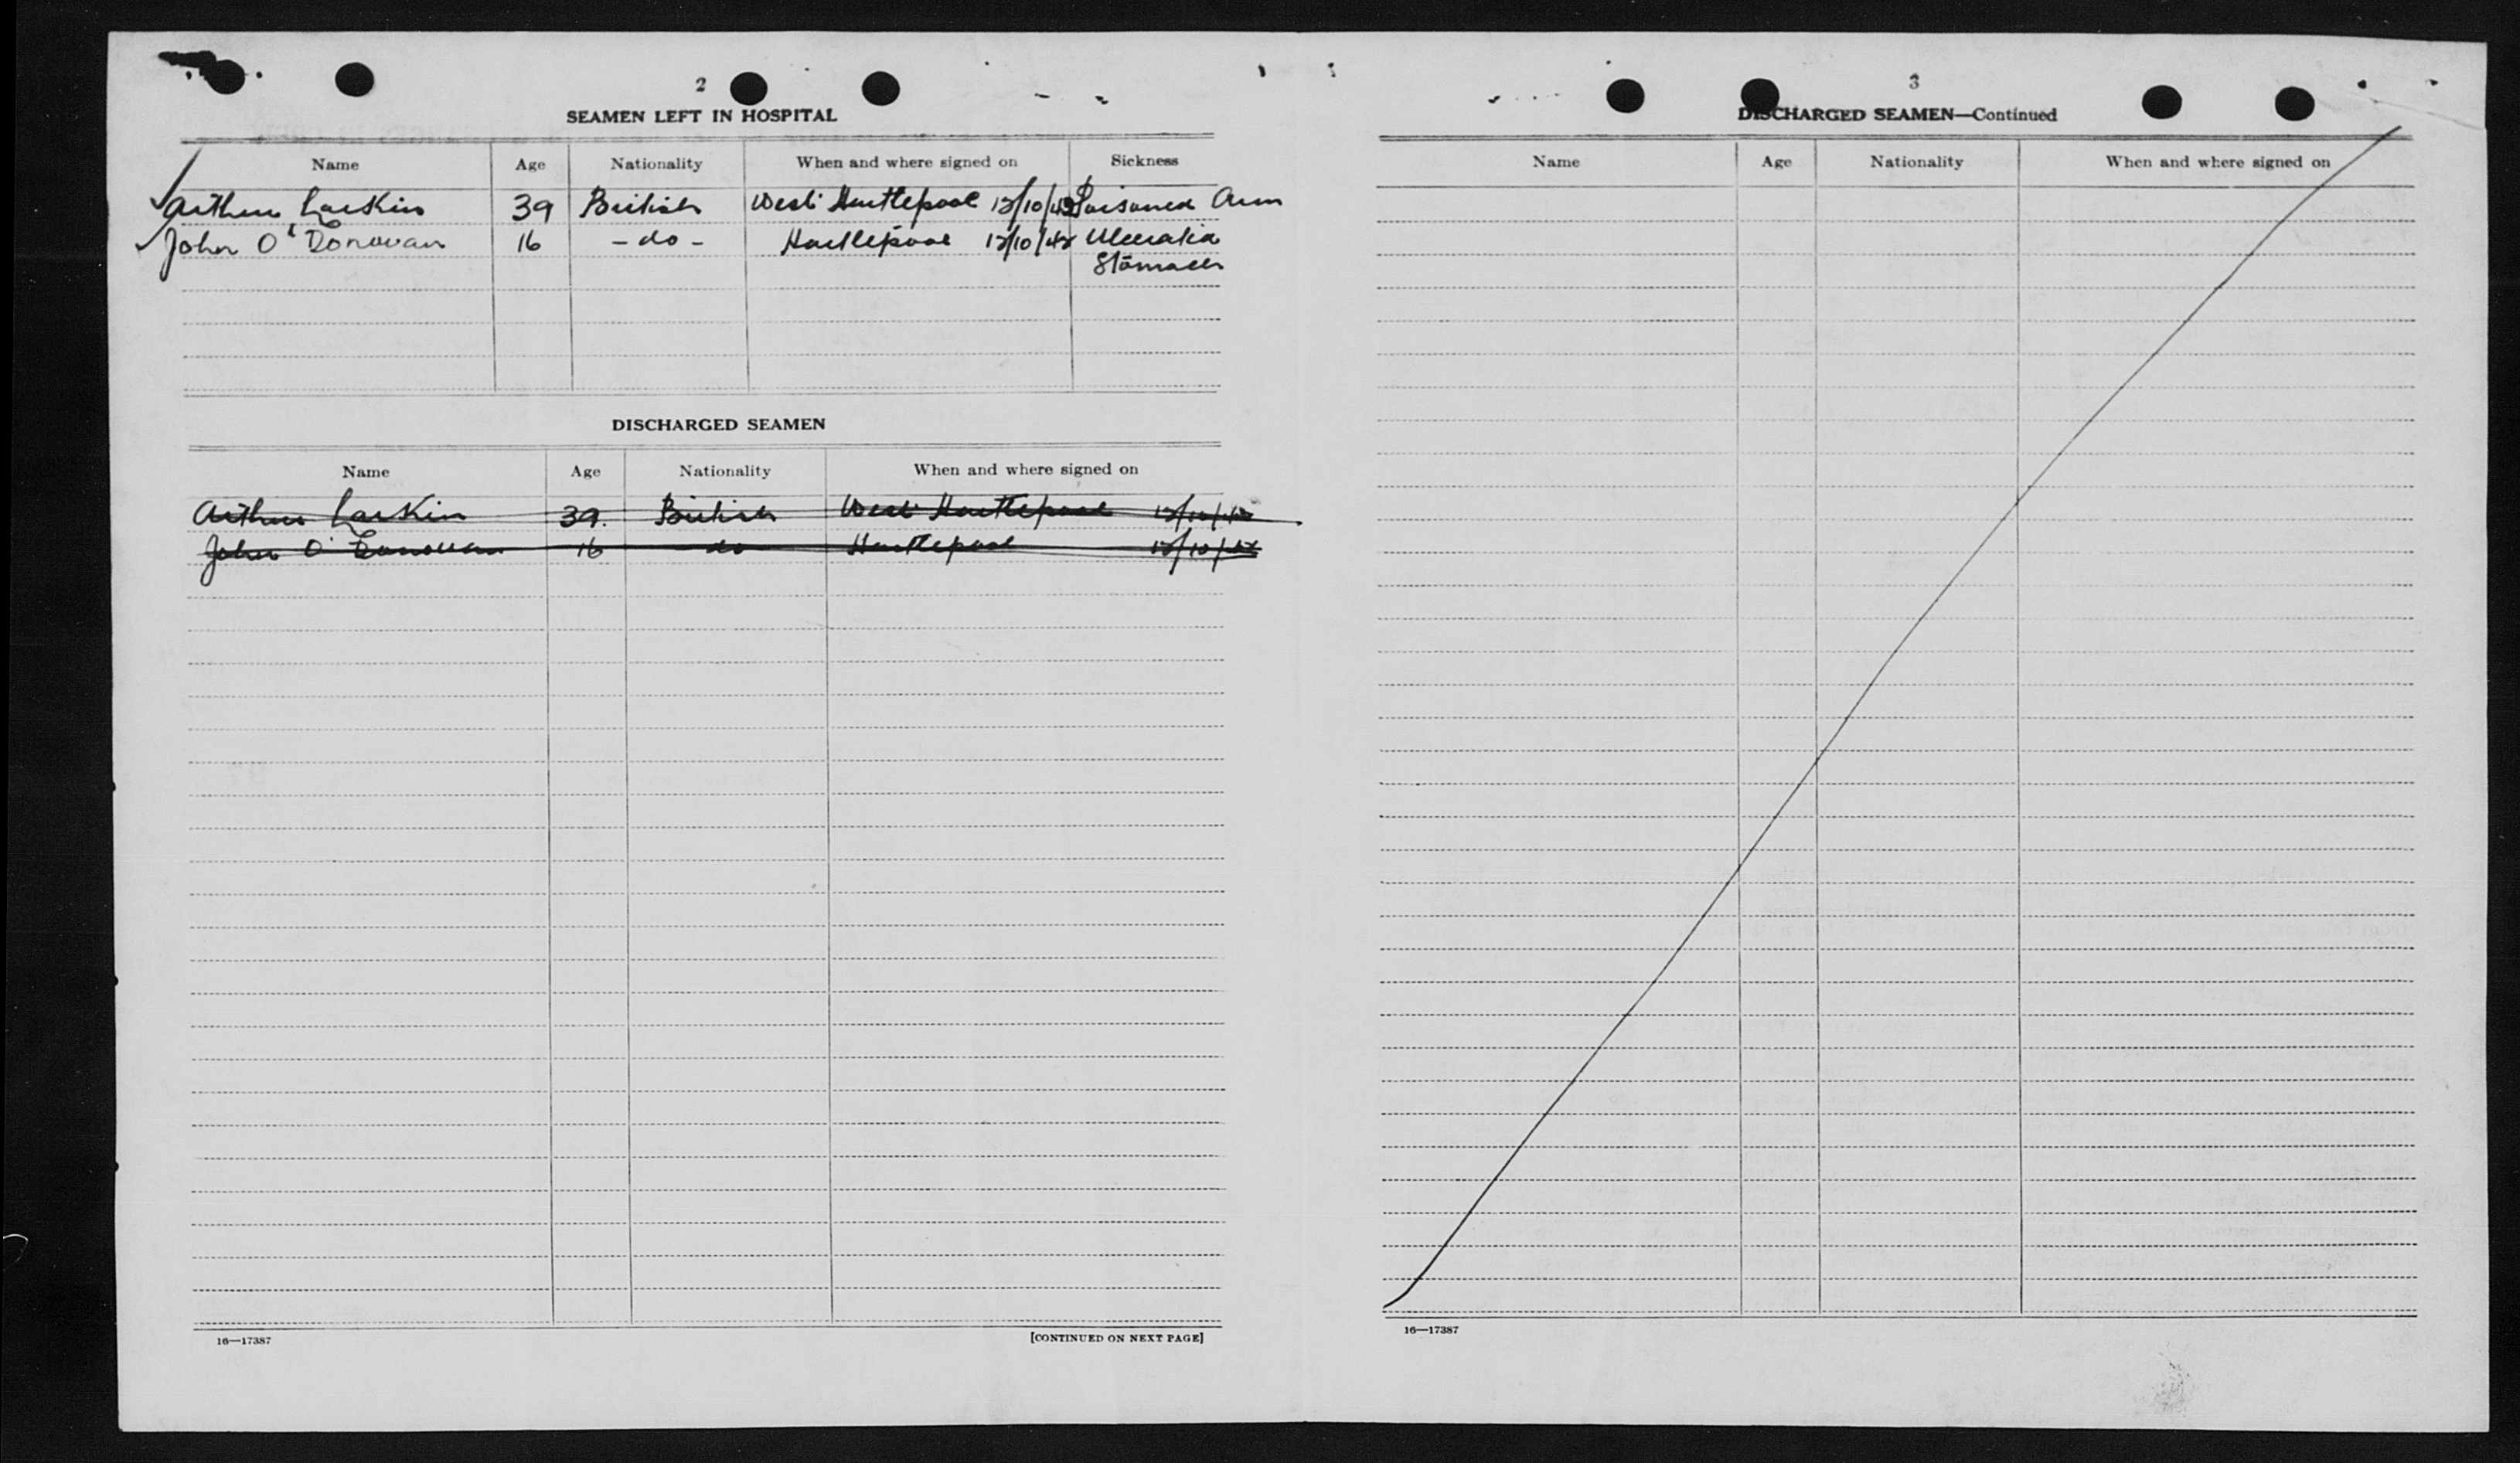 2
SEAMEN LEFT IN HOSPITAL
Name Age Nationality When and where signed on Sickness
Arthur Larkin 39 British West Hartlepool 12/10/42 Poisoned Arm
John O'Donovan 16 - do - Hartlepool 12/10/42 Ulcerated
Stomach
DISCHARGED SEAMEN
Name Age Nationality When and where signed on
Arthur Larkin 39. British West Hartlepool 12/10/42
John O'Donovan 16 do Hartlepool 12/10/42
16—17387 [CONTINUED ON NEXT PAGE]
3
DISCHARGED SEAMEN—Continued
Name Age Nationality When and where signed on
16—17387